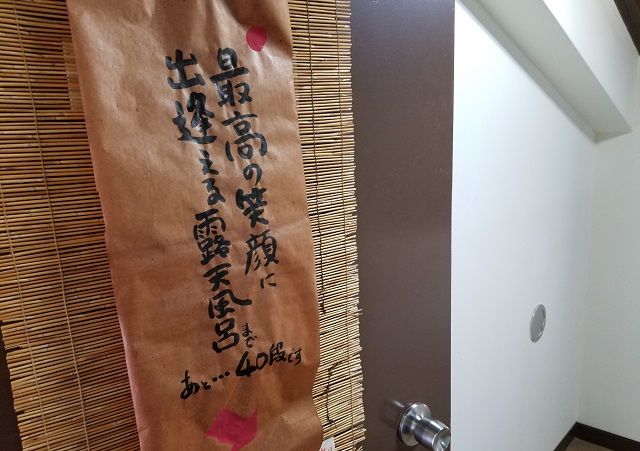 最高の笑顔に
出逢える露天風呂まで
あと…40段です